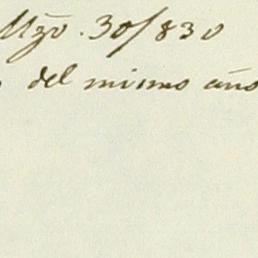 Mzo. 30/830
del mismo año